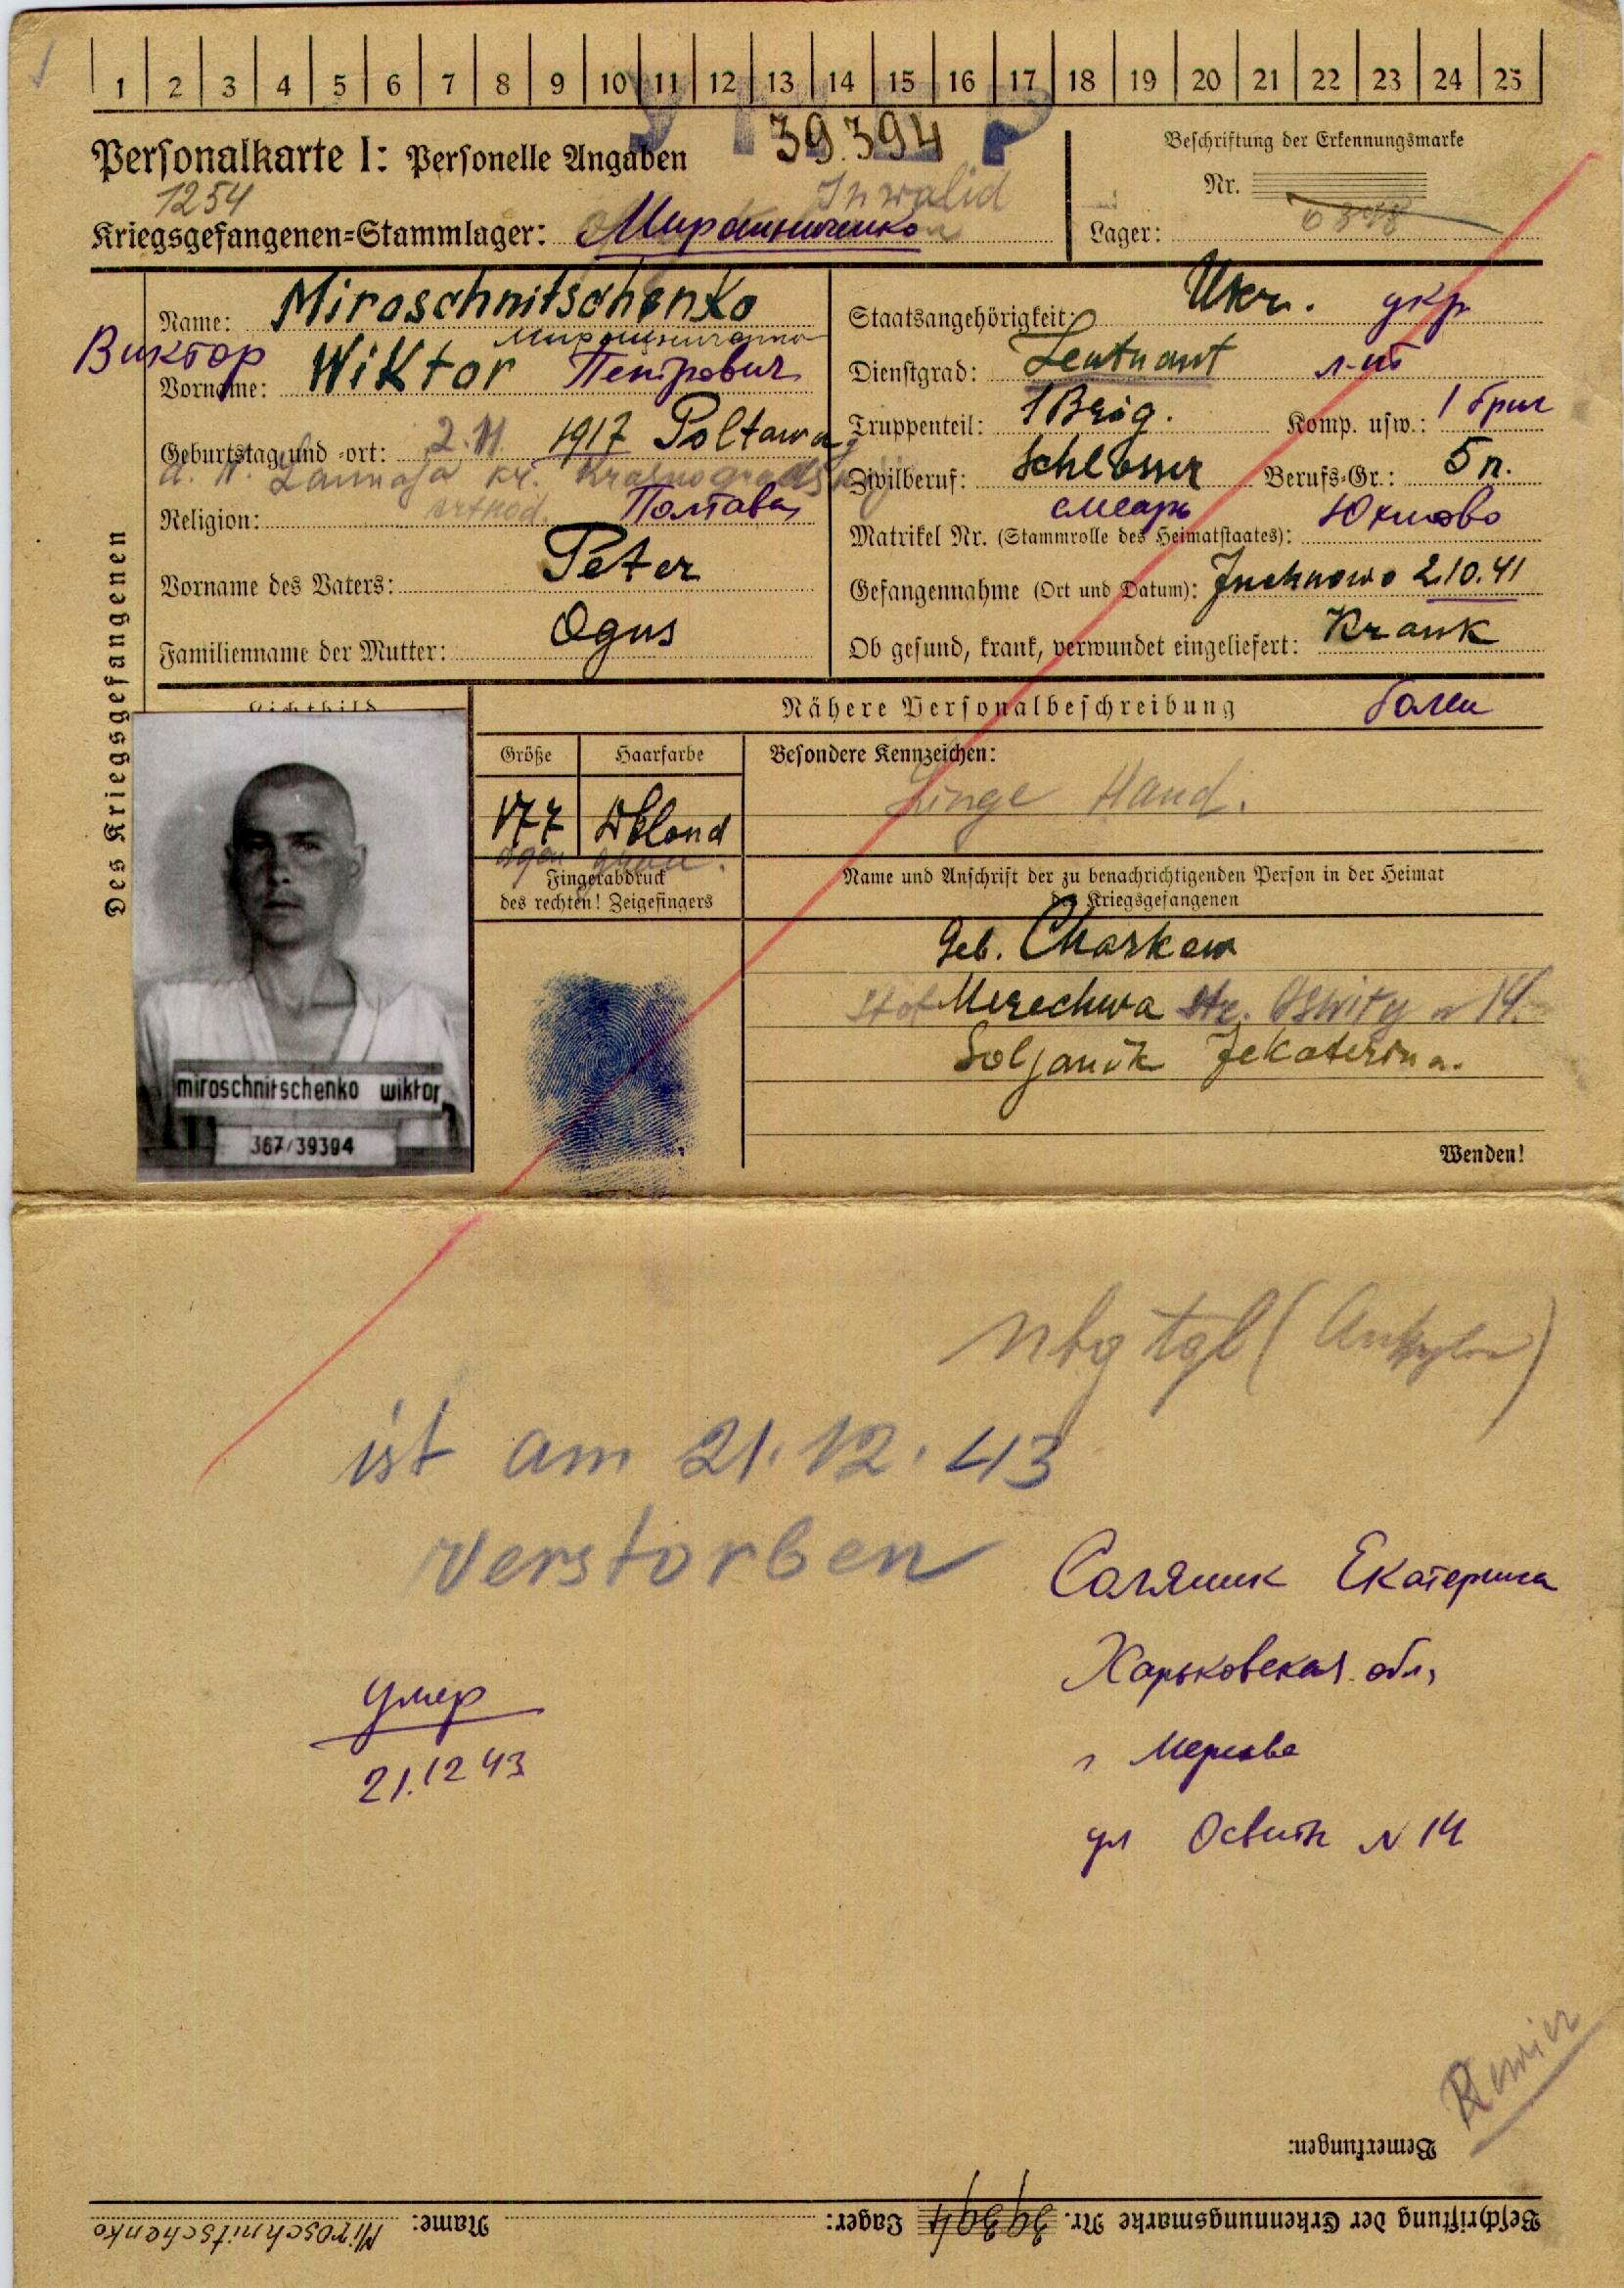 1 2 3 4 5 6 7 8 9 10 11 12 13 14 15 16 17 18 19 20 21 22 23 24 25
39394
Personalkarte I: Personelle Angaben
Beschriftung der Erkennungsmarke
1254
Inwalid
Nr.
Kriegsgefangenen=Stammlager: Мирошниченко
Lager:
Des Kriegsgefangenen
Name: Miroschnitschenko
Мирошниченко
Виктор
Vorname: Wiktor Петрович
Geburtstag und -ort: 2. 1917 Poltawa
Krasnograd
Religion: Полтава
Vorname des Vaters: Peter
Familienname der Mutter: Ogus
Staatsangehörigkeit: Ukr. укр
Dienstgrad: Leutnant л-нт
Truppenteil: 1 Brig. Komp. usw.: 1 бриг
Zivilberuf: Schlosser Berufs=Gr.: 5 п.
слесарь Юхново
Matrikel Nr. (Stammrolle des Heimatstaates):
Gefangennahme (Ort und Datum): Juchnowo 2.10.41
Ob gesund, krank, verwundet eingeliefert: Krank
болен
Lichtbild
miroschnitschenko wiktor
367/39394
Nähere Personalbeschreibung
Größe
Haarfarbe
Besondere Kennzeichen:
177
Dkblond
Hand.
Fingerabdruck
des rechten! Zeigefingers
Name und Anschrift der zu benachrichtigenden Person in der Heimat
des Kriegsgefangenen
Geb. Charkow
Merechwa str. Oswity N 14
Soljanik Jekaterina.
Wenden!
ist am 21.12.43
verstorben
умер
21.12 43
Саляник Екатерина
Харьковская обл,
г Мерефа
ул Освиты N 14
Revier
Bemerkungen:
Beschriftung der Erkennungsmarke Nr. 39394 Lager:
Name: Miroschnitschenko